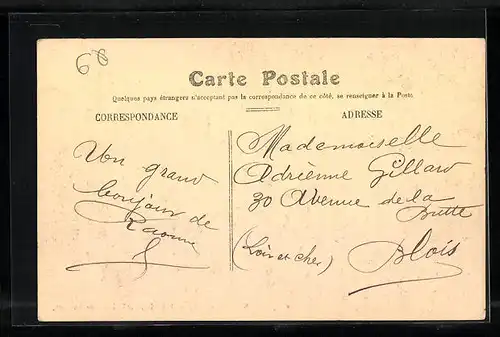 68
Carte Postale
Quelques pays étrangers n'acceptant pas la correspondance de ce côté, se renseigner à la Poste
CORRESPONDANCE
Un grand
bonjour de
ADRESSE
Mademoiselle
Adrienne Gillard
30 Avenue de la
Butte
(Loir et cher)
Blois